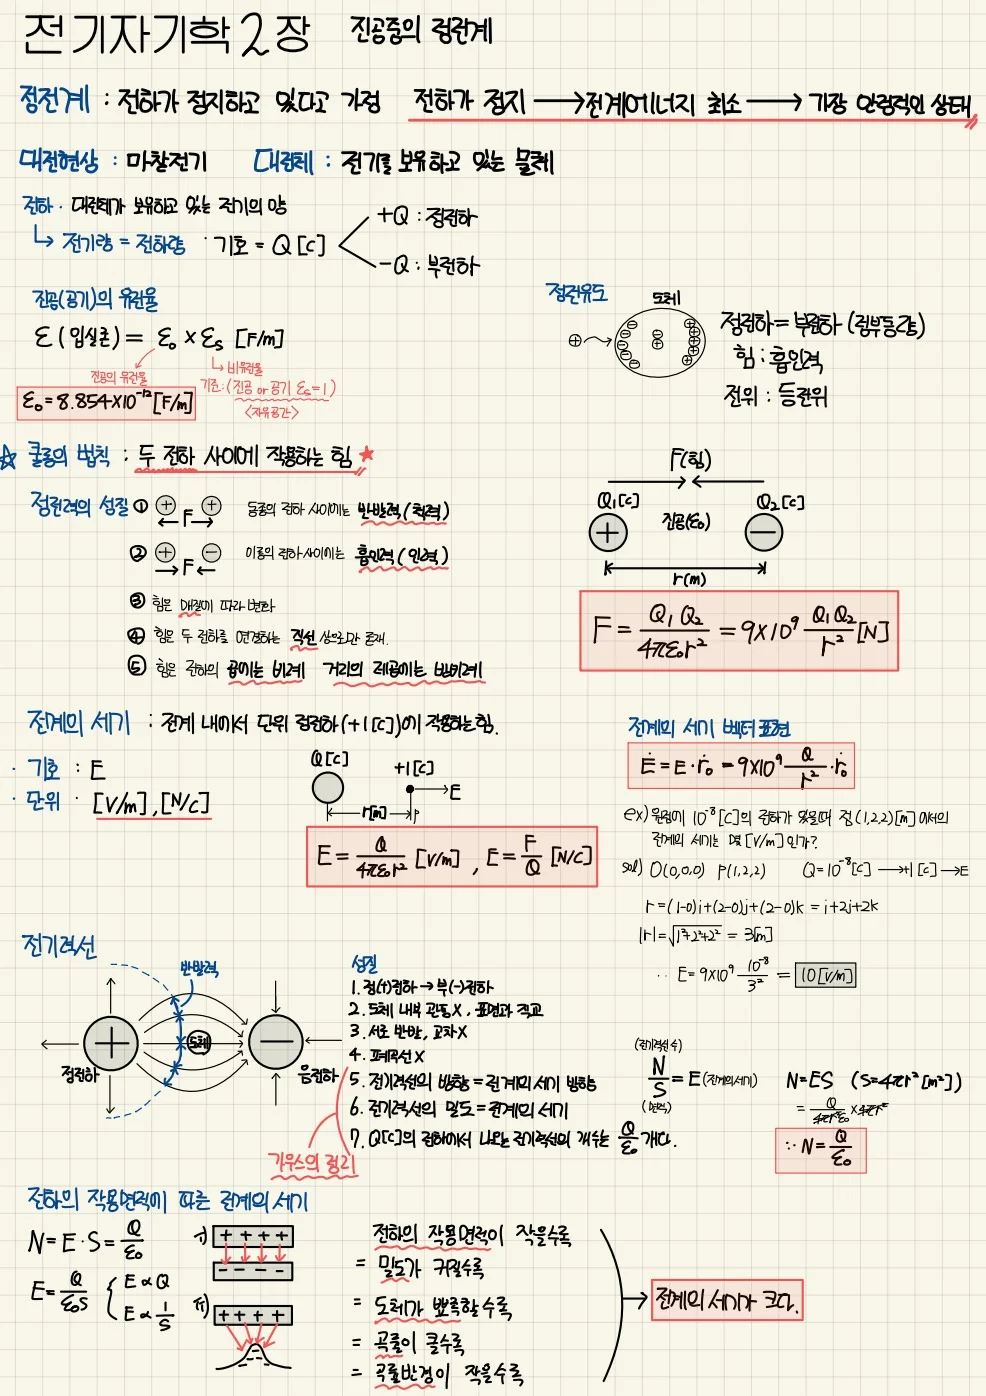 전기자기학 2장 진공중의 정전계
정전계 : 전하가 정지하고 있다고 가정 전하가 정지 → 전계에너지 최소 → 가장 안정적인 상태
대전현상 : 마찰전기 대전체 : 전기를 보유하고 있는 물체
전하 · 대전체가 보유하고 있는 전기의 양
↳ 전기량 = 전하량 · 기호 = Q [c]
+Q : 정전하
-Q : 부전하
진공(공기)의 유전율
ε (입실론) = ε₀ × εs [F/m]
진공의 유전율
↳ 비유전율
기준 : (진공 or 공기 εs = 1)
<자유공간>
ε₀ = 8.854×10⁻¹² [F/m]
정전유도
도체
정전하 = 부전하 (전부등량)
힘 : 흡인력
전위 : 등전위
☆ 쿨롱의 법칙 : 두 전하 사이에 작용하는 힘 ★
정전력의 성질 ① + F + 동종의 전하 사이에는 반발력 (척력)
② + F - 이종의 전하 사이에는 흡인력 (인력)
③ 힘은 매질에 따라 변화
④ 힘은 두 전하를 연결하는 직선 상으로만 존재.
⑤ 힘은 전하의 곱에는 비례 거리의 제곱에는 반비례
F(힘)
Q₁[c] Q₂[c]
+ 진공(ε₀) -
r(m)
F = Q₁Q₂ / 4πε₀r² = 9×10⁹ Q₁Q₂ / r² [N]
전계의 세기 : 전계 내에서 단위 정전하(+1[c])에 작용하는 힘.
· 기호 : E
· 단위 · [V/m], [N/c]
Q[c] +1[c]
E
r[m] P
E = Q / 4πε₀r² [V/m], E = F / Q [N/C]
전계의 세기 벡터 표현
Ė = E · ṙ₀ = 9×10⁹ Q / r² · ṙ₀
ex) 원점에 10⁻⁸[C]의 전하가 있을때 점 (1,2,2)[m] 에서의
전계의 세기는 몇 [V/m] 인가?
sol) O(0,0,0) P(1,2,2) Q = 10⁻⁸[c] → +1[c] → E
r = (1-0)i+(2-0)j+(2-0)k = i+2j+2k
|r| = √1²+2²+2² = 3[m]
∴ E = 9×10⁹ 10⁻⁸ / 3² = 10[V/m]
전기력선
반발력
+ 도체 -
정전하 음전하
성질
1. 정(+)전하 → 부(-)전하
2. 도체 내부 관통 X, 표면과 직교
3. 서로 반발, 교차 X
4. 폐곡선 X
5. 전기력선의 방향 = 전계의 세기 방향
6. 전기력선의 밀도 = 전계의 세기
7. Q[c]의 전하에서 나오는 전기력선의 개수는 Q/ε₀ 개다.
가우스의 정리
(전기력선 수)
N / S = E (전계의세기)
(면적)
N = ES (S = 4πr² [m²])
= Q / 4πr²ε₀ × 4πr²
∵ N = Q / ε₀
전하의 작용면적에 따른 전계의 세기
N = E · S = Q / ε₀
E = Q / ε₀S { E ∝ Q
E ∝ 1 / S
i) + + + +
- - - -
ii) + + + +
전하의 작용면적이 작을수록
= 밀도가 커질수록
= 도체가 뾰족할수록
= 곡률이 클수록
= 곡률반경이 작을수록
→ 전계의 세기가 크다.